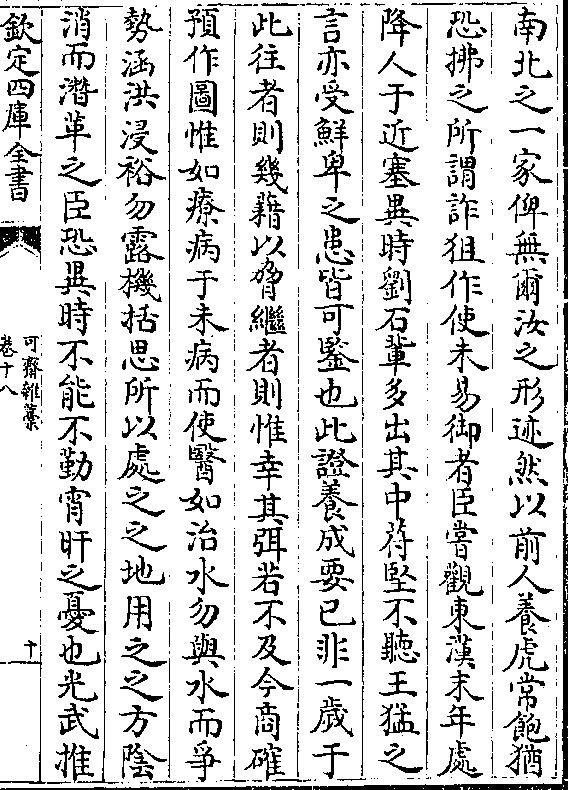 南北之一家俾無爾汝之形迹然以前人養虎常飽猶
恐拂之所謂詐狙作使未易御者臣嘗觀東漢末年處
降人于近塞異時劉石輩多出其中苻堅不聽王猛之
言亦受鮮卑之患皆可鑒也此證養成要已非一歲于
此往者則幾藉以脅繼者則惟幸其弭若不及今商確
預作圖惟如療病于未病而使醫如治水勿與水而爭
勢涵洪浸裕勿露機括思所以處之之地用之之方陰
消而潛革之臣恐異時不能不勤宵旰之憂也光武推
欽定四庫全書
可齋雜藁
卷十八
十